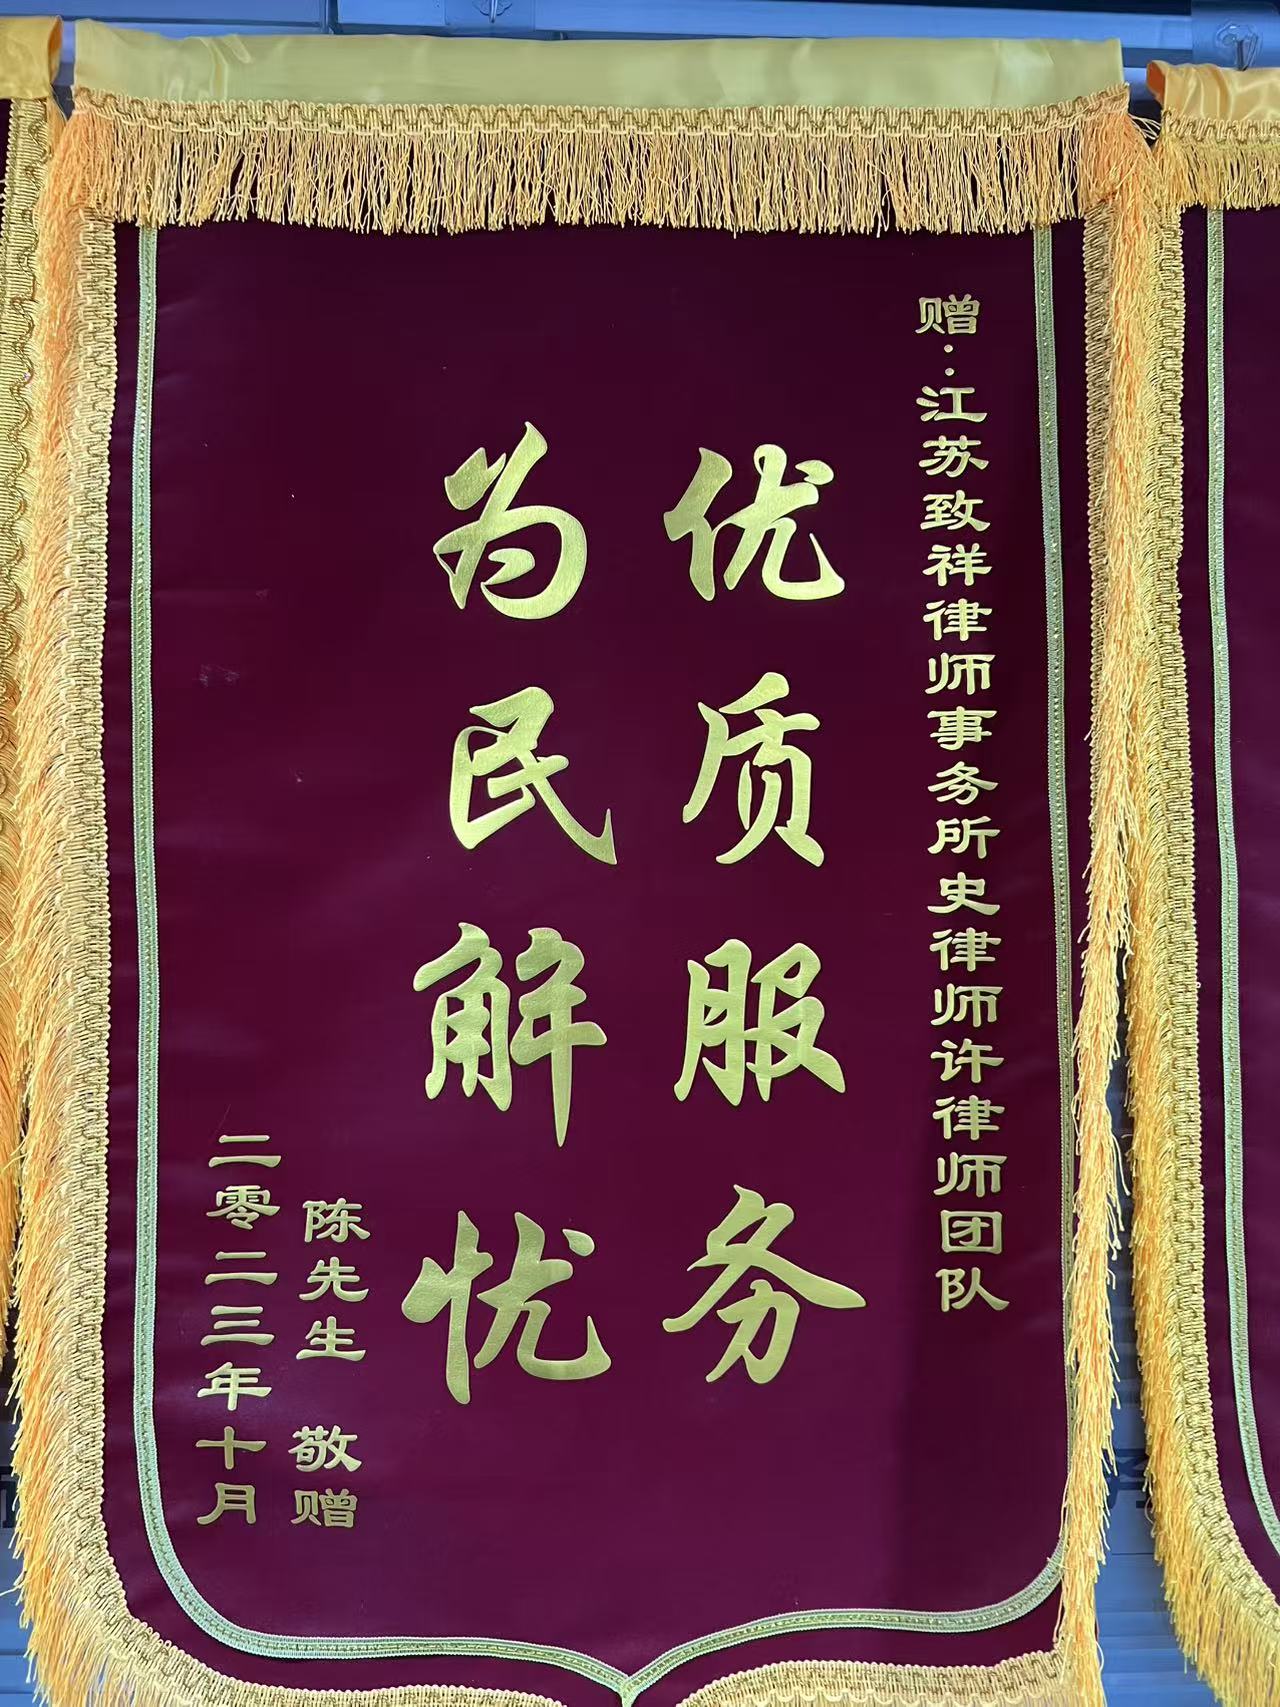 赠：江苏致祥律师事务所史律师许律师团队
优质服务
为民解忧
陈先生 敬赠
二零二三年十月